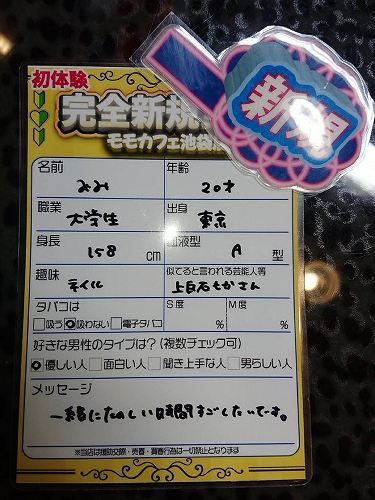 初体験
新規
完全新規
モモカフェ池袋
名前 みみ 年齢 20才
職業 大学生 出身 東京
身長 158cm 血液型 A型
趣味 ネイル 似てると言われる芸能人等 上白石もかさん
タバコは S度 M度
□吸う ◎吸わない □電子タバコ % %
好きな男性のタイプは?(複数チェック可)
◎優しい人 □面白い人 □聞き上手な人 □男らしい人
メッセージ
一緒にたのしい時間すごしたいです。
※当店は援助交際・売春・買春行為は一切禁止となります